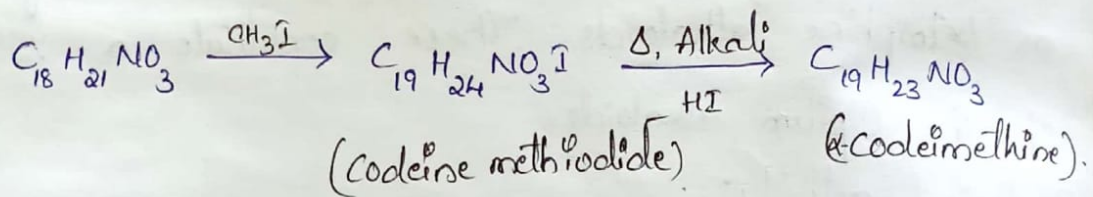 C₁₈H₂₁NO₃ —CH₃I→ C₁₉H₂₄NO₃I —Δ, Alkali / HI→ C₁₉H₂₃NO₃
(Codeine methiodide) (α-codeimethine).